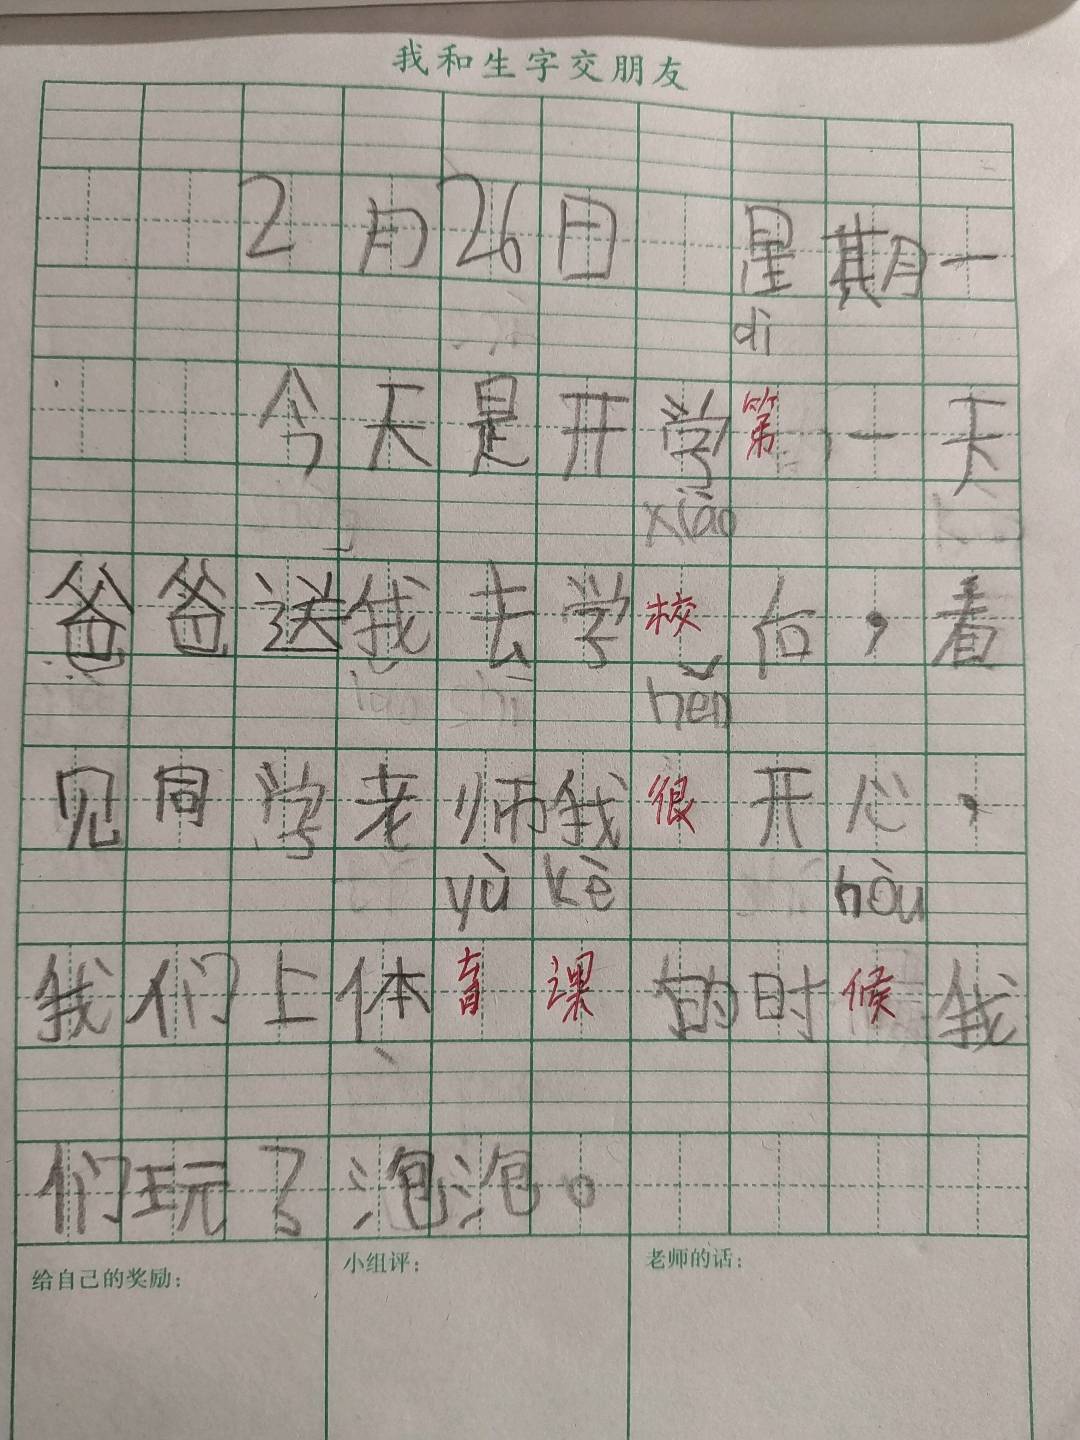 我和生字交朋友
2月26日 星期一
dì
今天是开学第一天
xiào
爸爸送我去学校后,看
hěn
见同学老师我很开心,
yù kè hòu
我们上体育课的时候我
们玩了泡泡。
给自己的奖励:
小组评:
老师的话: